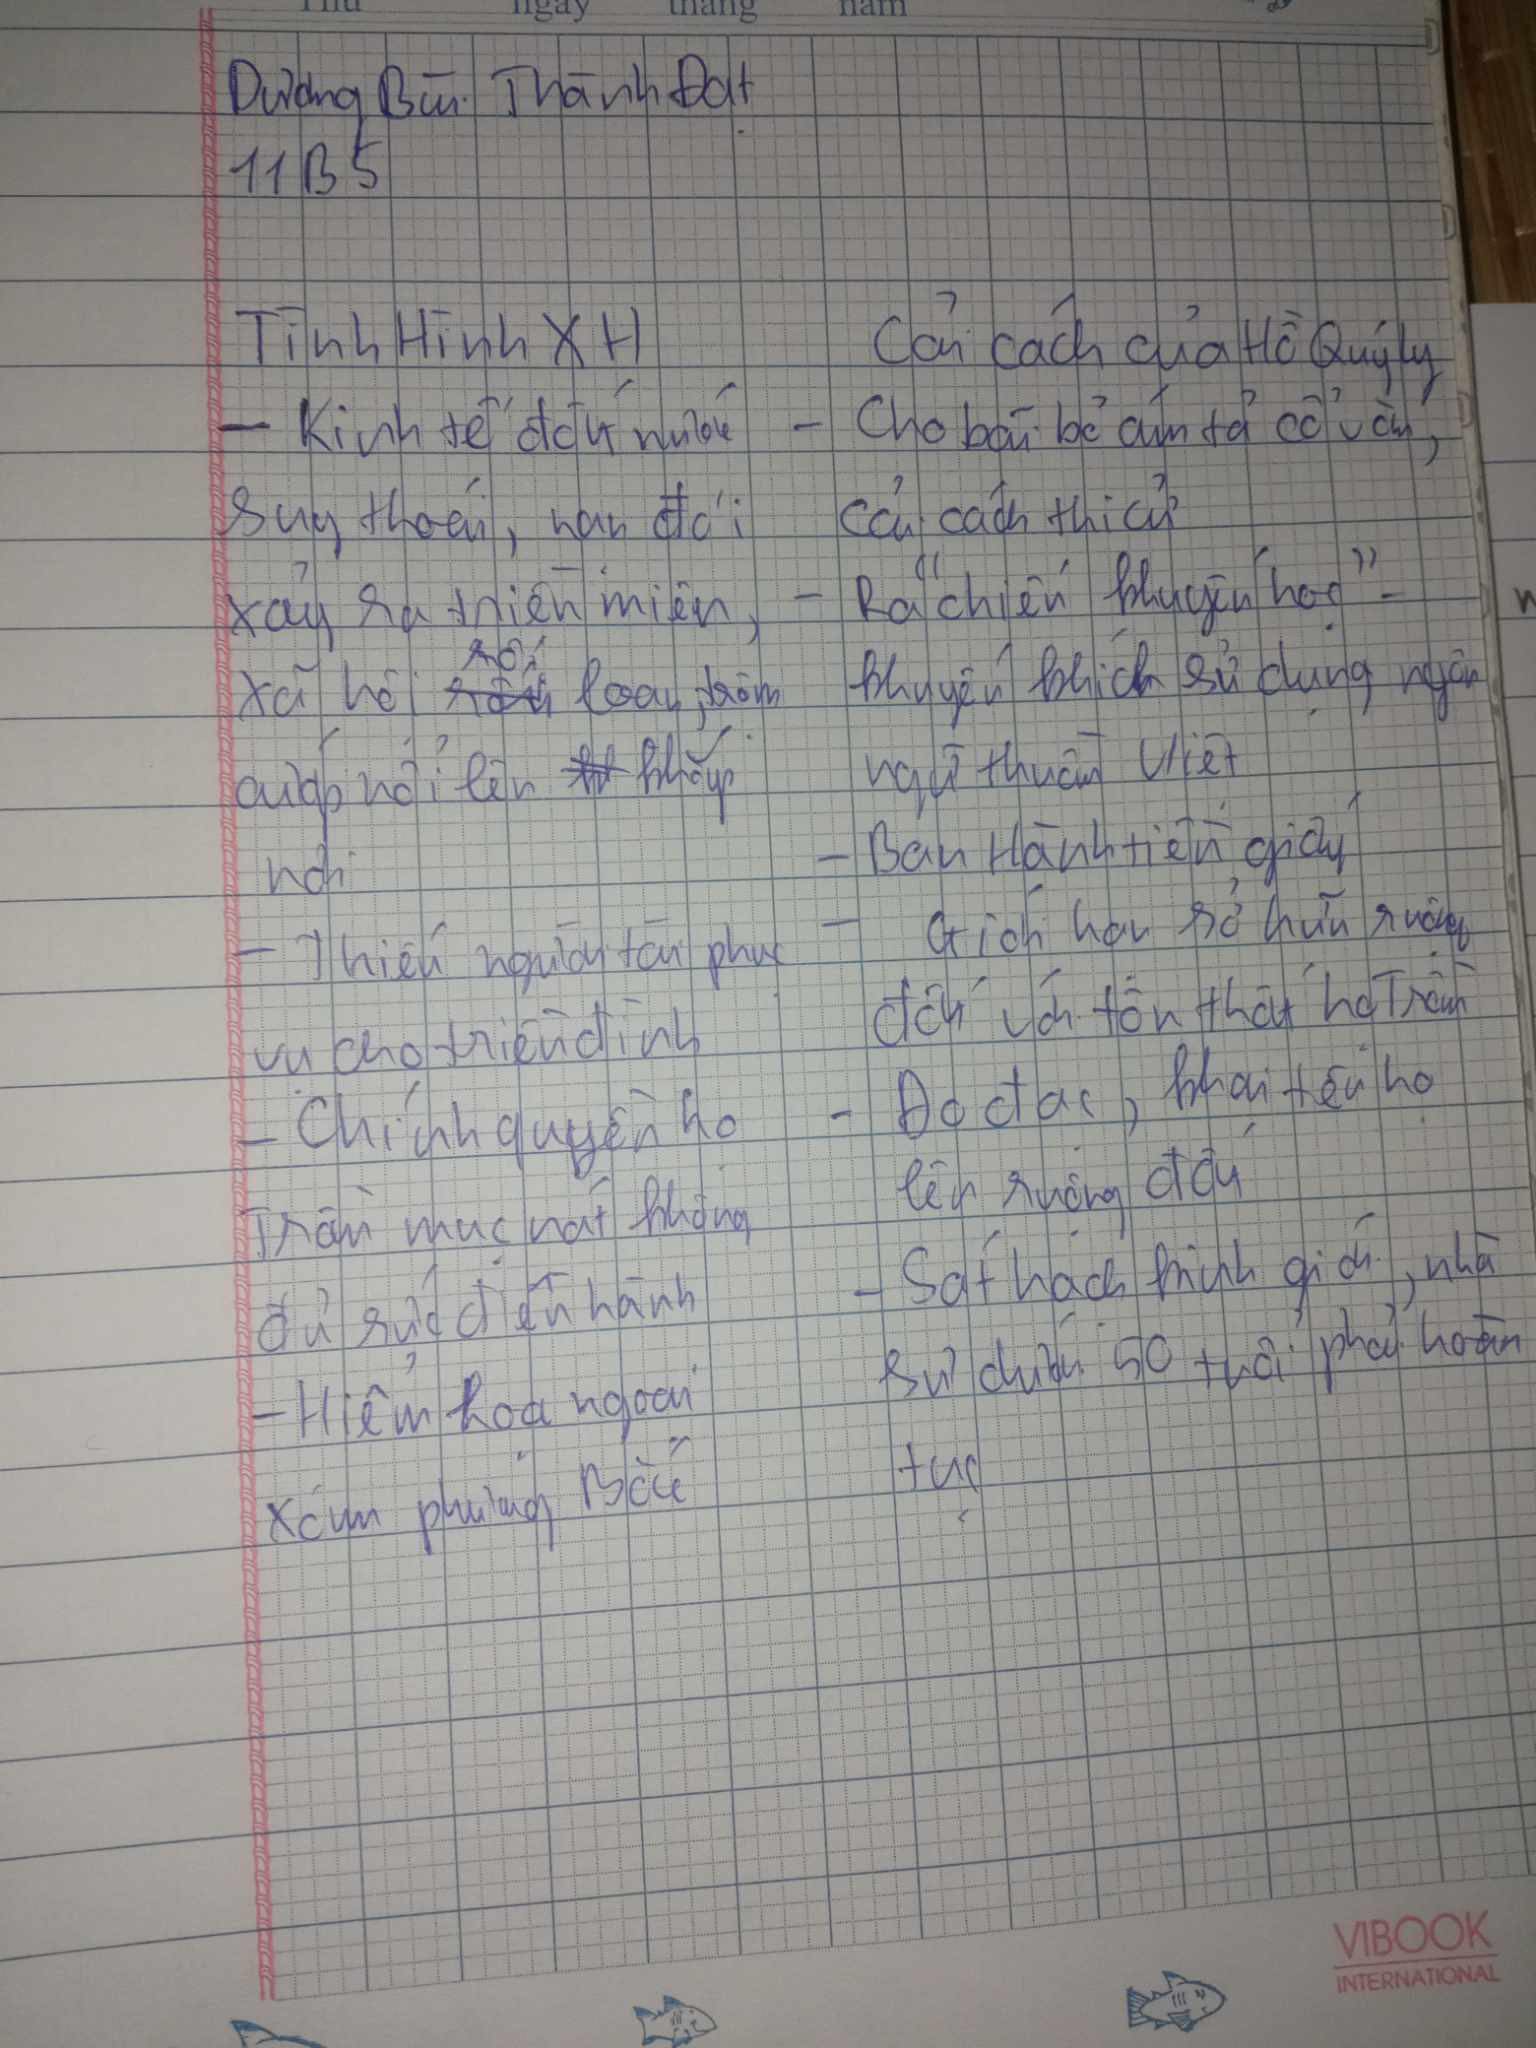 Thứ ngày tháng năm
Dương Bùi Thành Đạt
11B5
Tình Hình XH
- Kinh tế đất nước
suy thoái, nạn đói
xảy ra triền miên,
xã hội rối loạn, trộm
cướp nổi lên khắp
nơi
- Thiếu người tài phục
vụ cho triều đình
- Chính quyền họ
Trần mục nát không
đủ sức điều hành
- Hiểm họa ngoại
xâm phương Bắc
Cải cách của Hồ Quý Ly
- Cho bãi bỏ ám tả cổ văn,
cải cách thi cử
- Ra "chiếu khuyến học" -
khuyến khích sử dụng ngôn
ngữ thuần Việt
- Ban Hành tiền giấy
- Giới hạn sở hữu ruộng
đất với tôn thất họ Trần
- Đo đạc, khai tên họ
lên ruộng đất
- Sát hạch kinh giới, nhà
sư dưới 50 tuổi phải hoàn
tục
VIBOOK
INTERNATIONAL